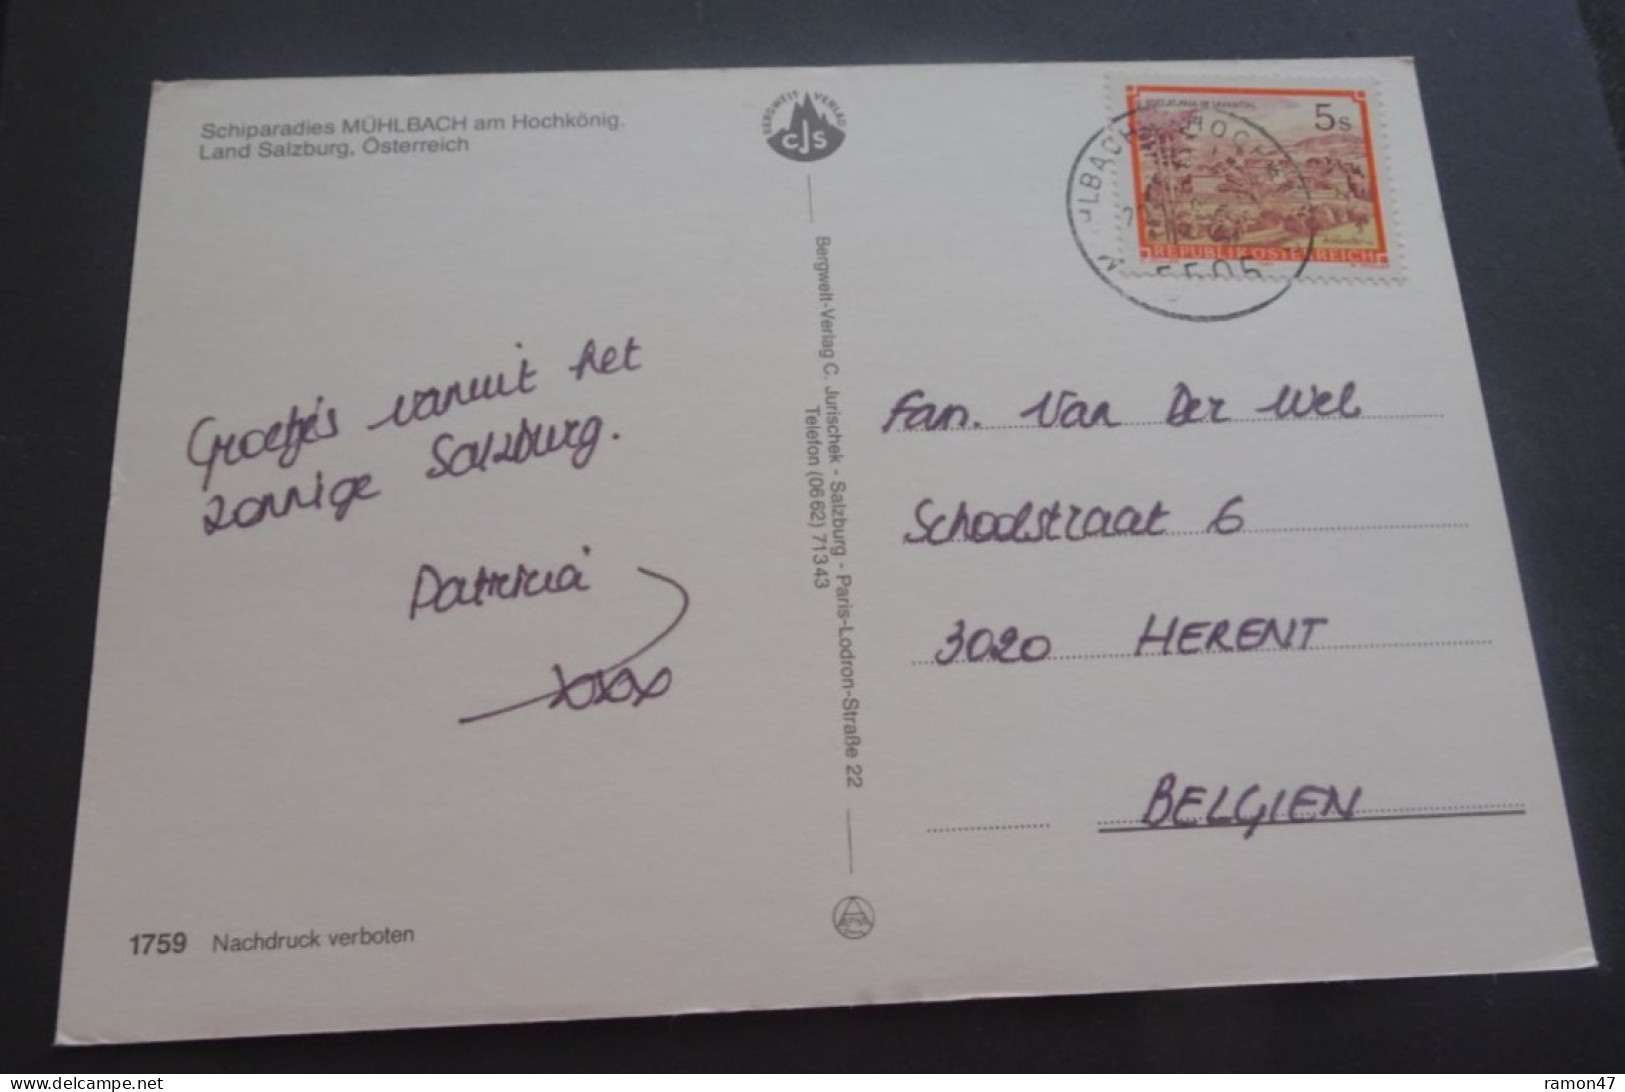 Schiparadies MÜHLBACH am Hochkönig.
Land Salzburg, Österreich
Groetjes vanuit het
zonnige Salzburg.
Patricia
xxx
1759 Nachdruck verboten
BERGWELT VERLAG
CJS
Bergwelt-Verlag C. Jurischek - Salzburg - Paris-Lodron-Straße 22
Telefon (0662) 71343
5s
REPUBLIK ÖSTERREICH
5505
Fam. Van Der Wel
Schoolstraat 6
3020 HERENT
BELGIEN
ramon47